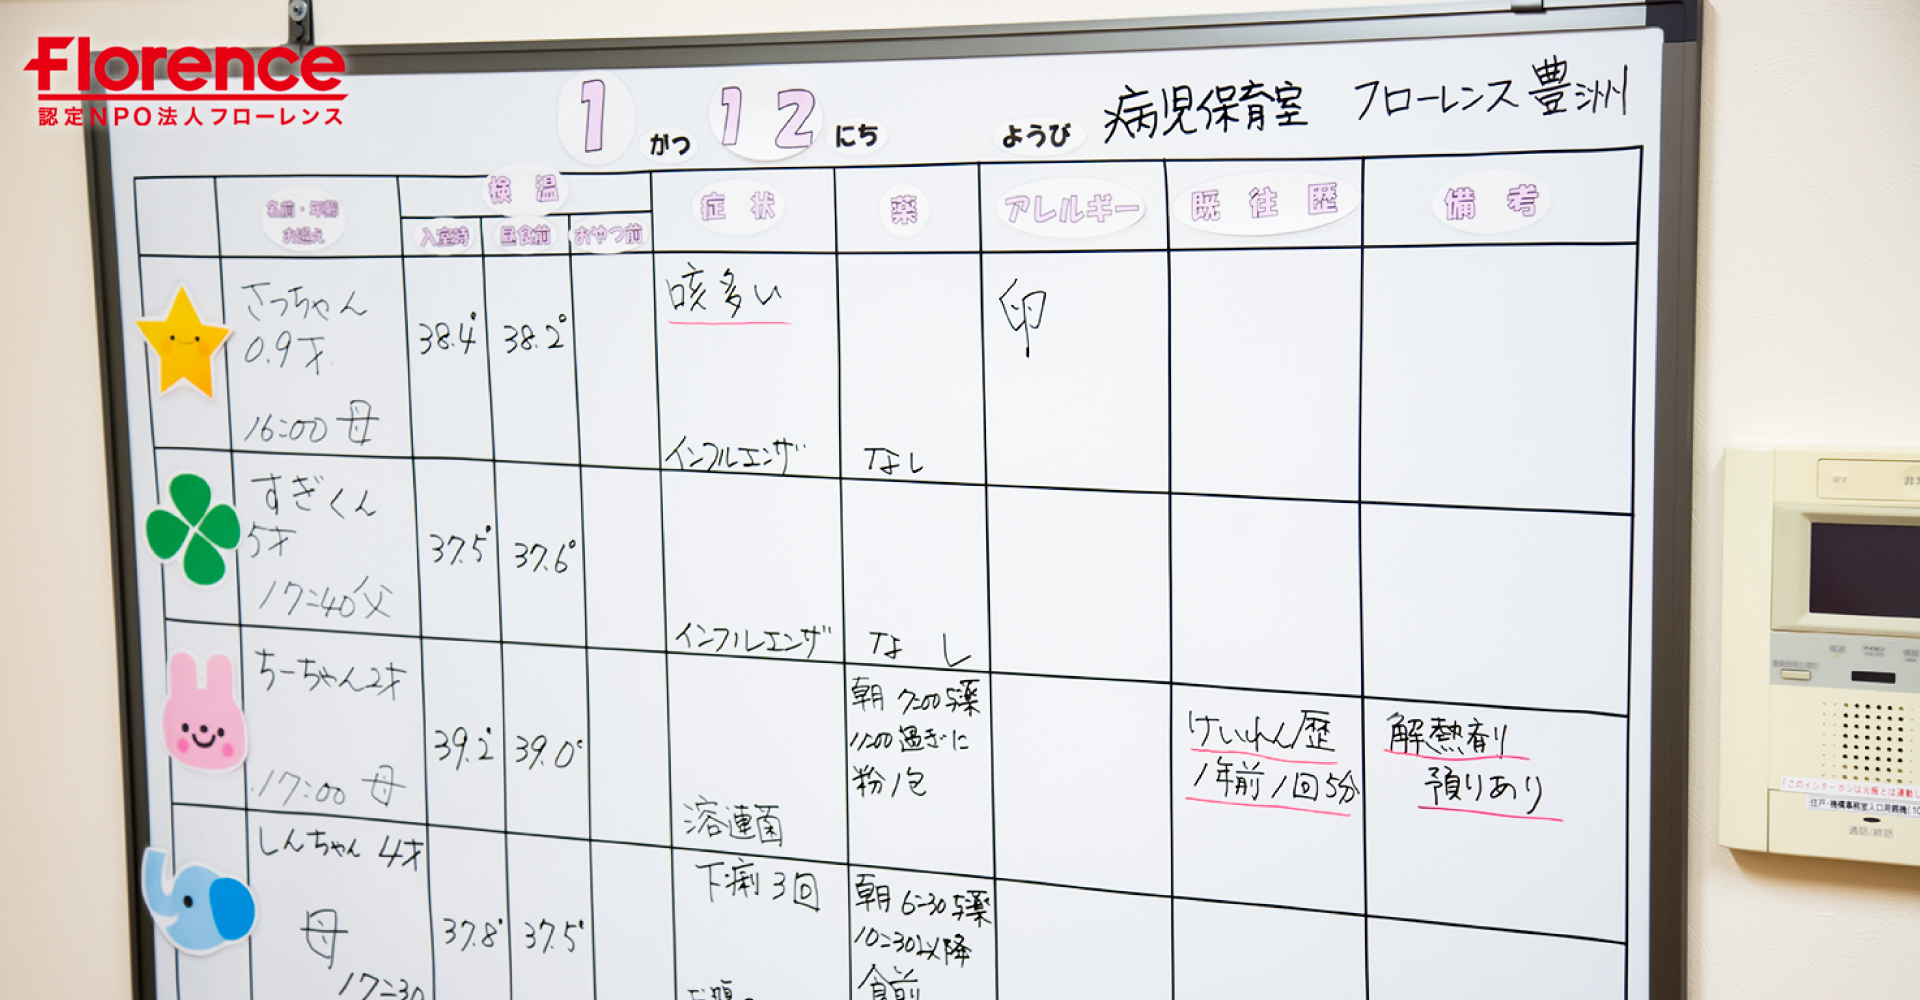 Florence
認定NPO法人フローレンス
1 がつ 12 にち ようび 病児保育室 フローレンス豊洲
名前・年齢
お迎え
検温
入室時 昼食前 おやつ前
症状
薬
アレルギー
既往歴
備考
さっちゃん
0.9才
16:00 母
38.4°
38.2°
咳多い
インフルエンザ
なし
卵
すぎくん
5才
17:40 父
37.5°
37.6°
インフルエンザ
なし
ちーちゃん2才
17:00 母
39.2°
39.0°
溶連菌
朝 7:00 与薬
11:00過ぎに
粉1包
けいれん歴
1年前1回5分
解熱剤
預りあり
しんちゃん 4才
母
17:30
37.8°
37.5°
下痢3回
朝 6:30 与薬
10:30以降
食前
「このインターホンは火報とは連動し
通話/終話